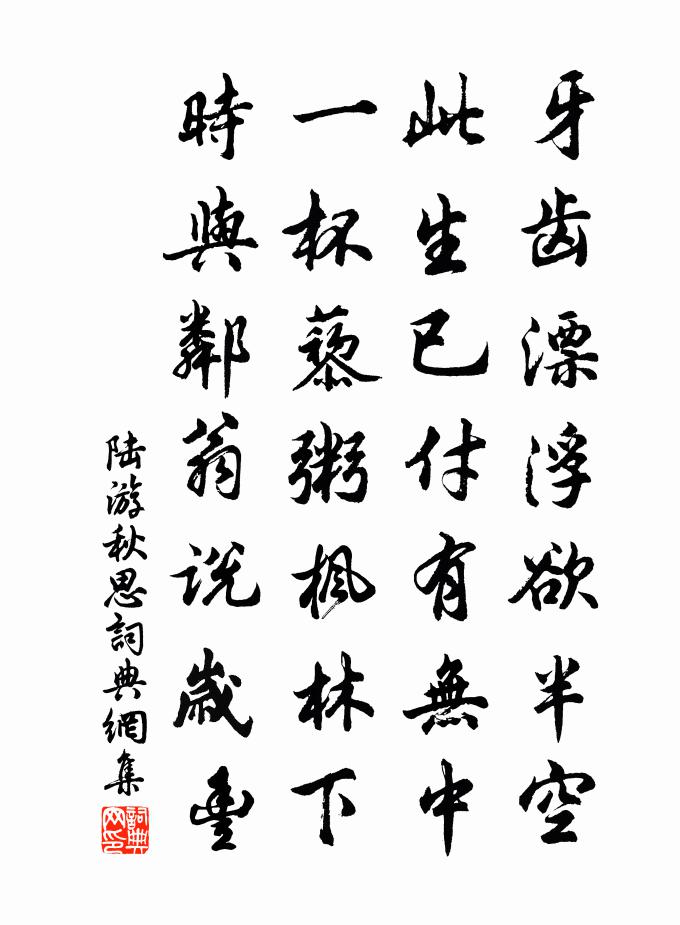 牙齿漂浮欲半空
此生已付有無中
一杯藜粥楓林下
時與鄰翁说歲豐
陆游秋思詞典網集
詞典网印